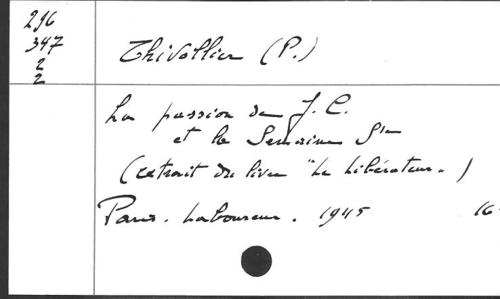 296
347
2
2
Thivollier (P.)
La passion de J. C.
et la Semaine Ste
(extrait du livre "Le Libérateur.)
Paris. Laboureur. 1945 16